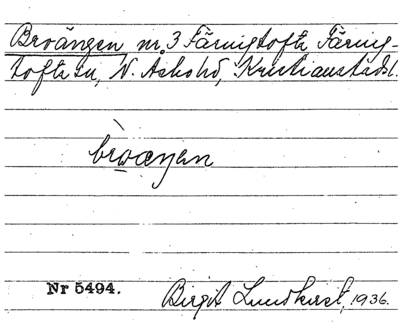 Broängen, nr 3 Färingtofta, Färing-
tofta sn, N. Åsbo hd, Kristianstads l.
broæŋen
Nr 5494.
Birgit Lundkvist, 1936.